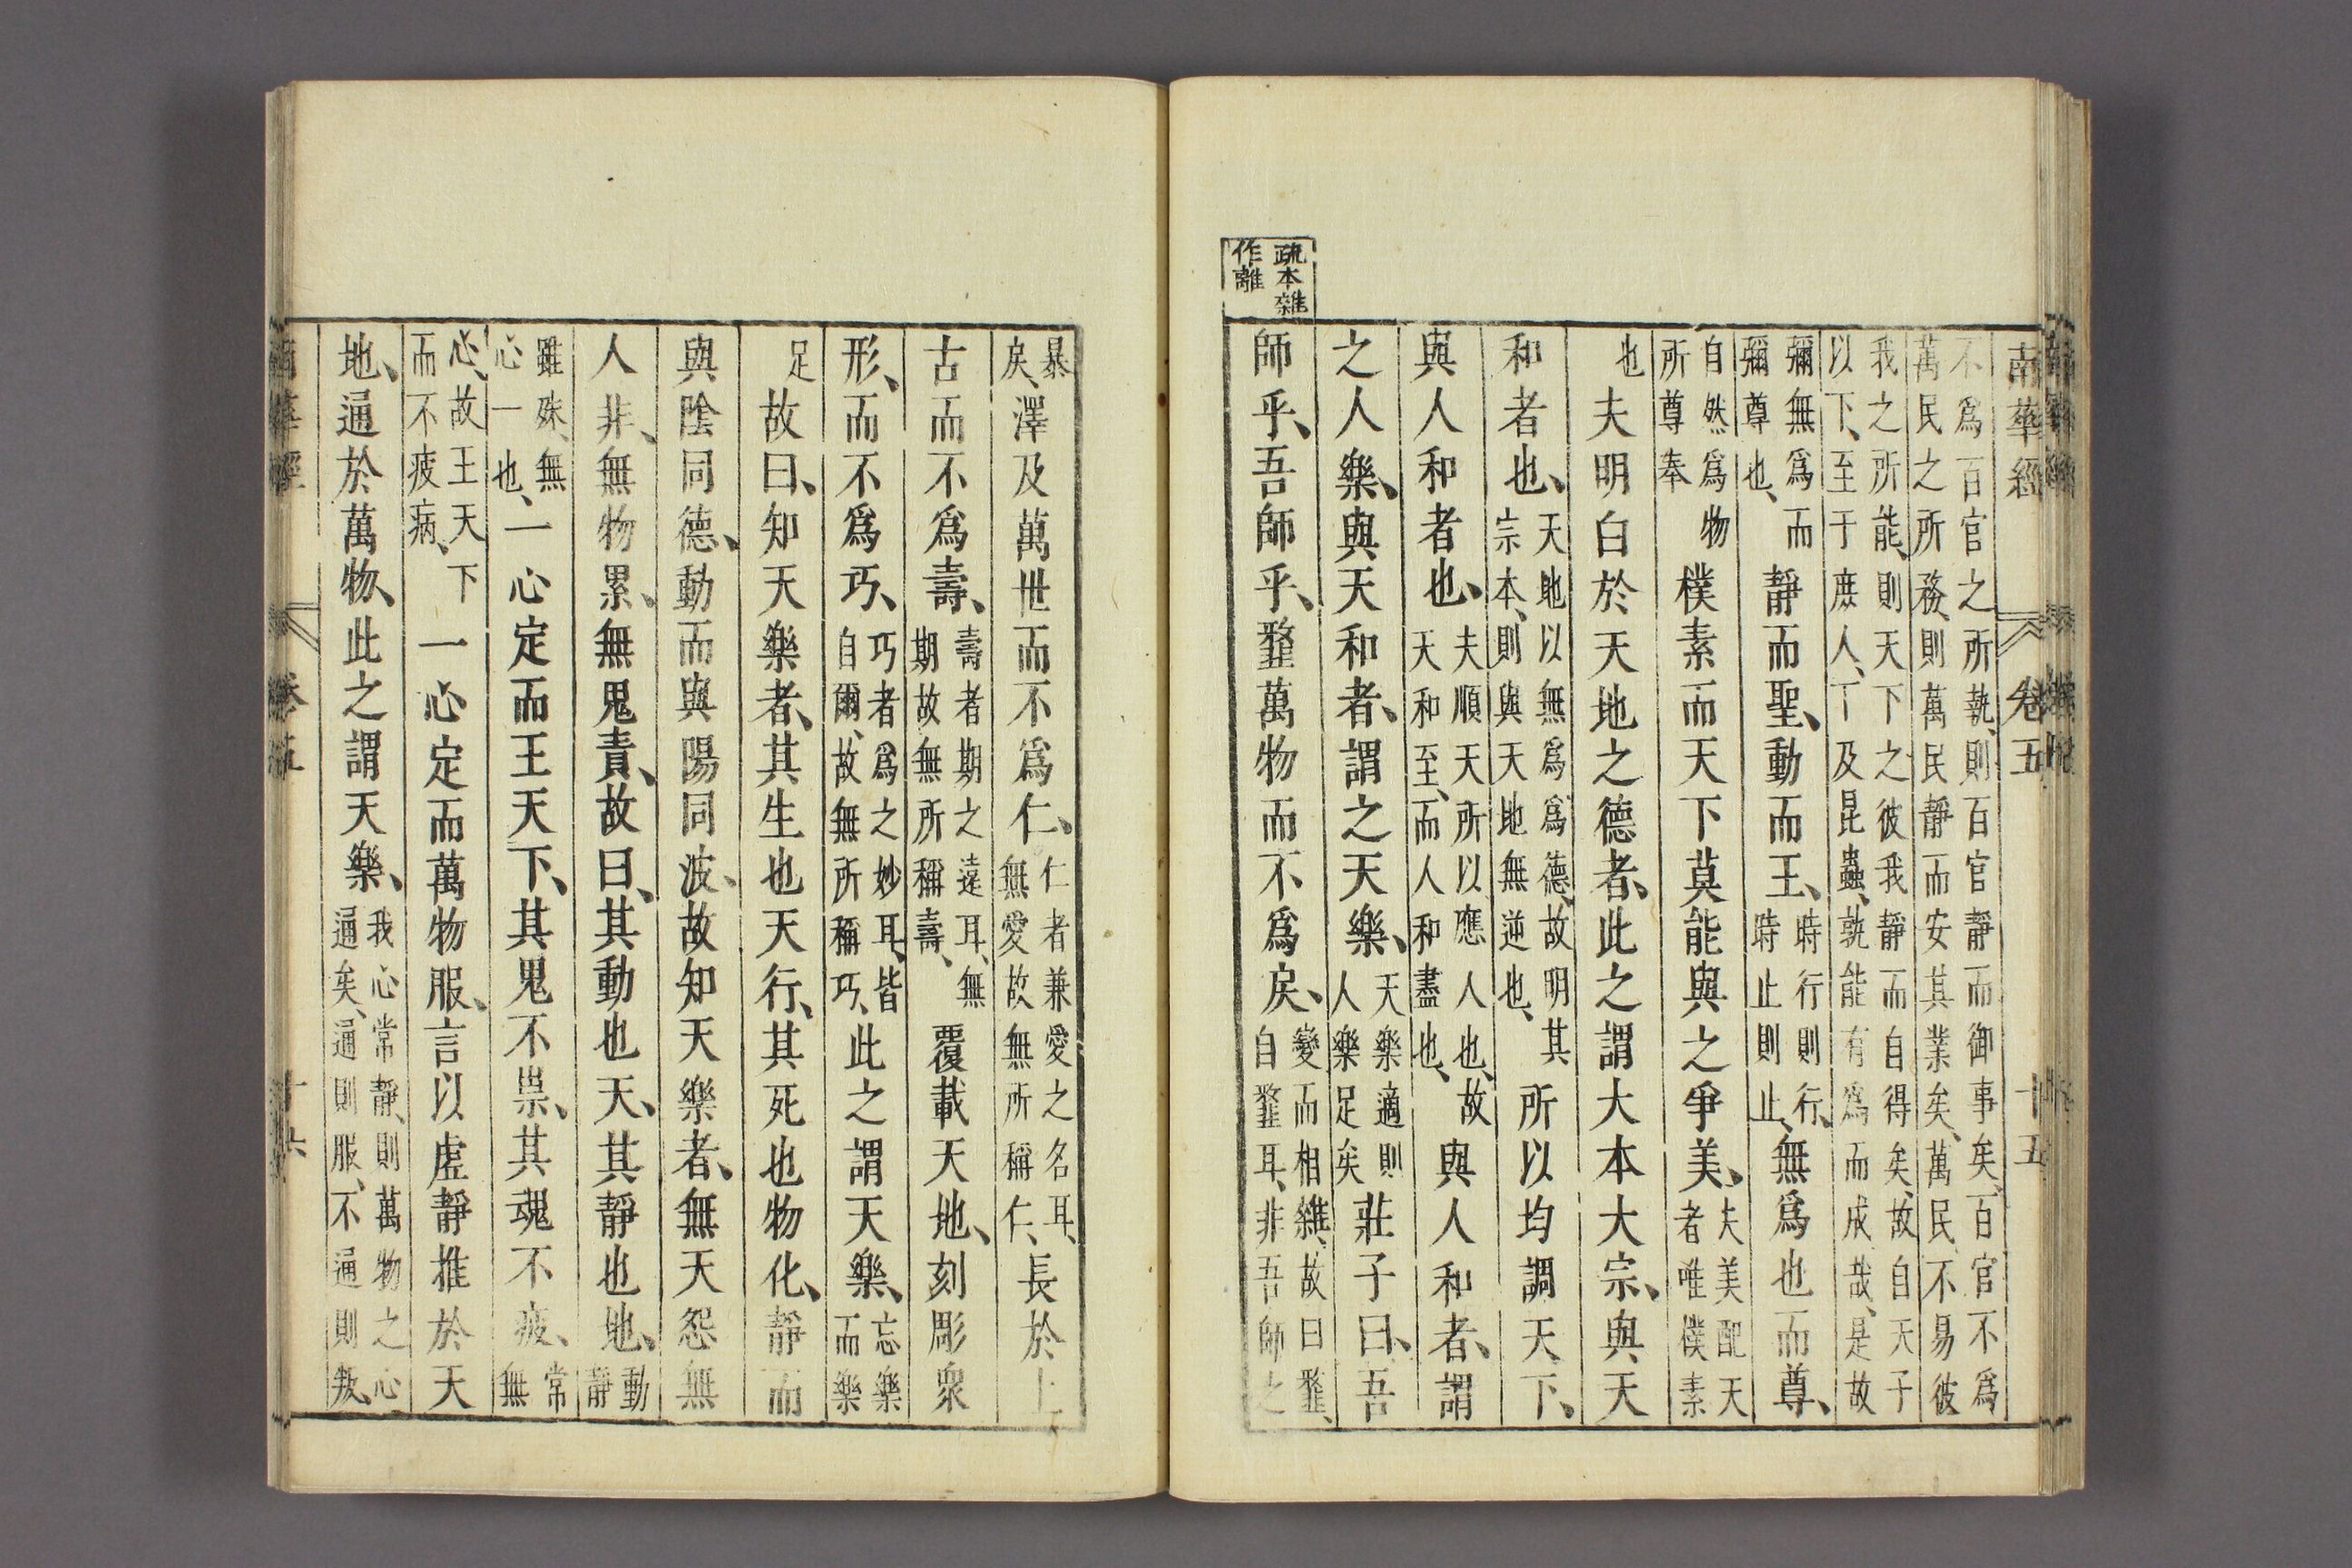 南華經　卷五　十五
不爲百官之所執、則百官靜而御事矣、百官不爲
萬民之所務、則萬民靜而安其業矣、萬民不易彼
我之所能、則天下之彼我靜而自得矣、故自天子
以下、至于庶人、下及昆蟲、孰能有爲而成哉、是故
彌無爲而彌尊也、靜而聖、動而王、時行則行、時止則止、無爲也而尊、
自然爲物所尊奉樸素而天下莫能與之爭美、夫美配天者唯樸素
也夫明白於天地之德者、此之謂大本大宗、與天
和者也、天地以無爲爲德、故明其宗本、則與天地無逆也、所以均調天下、
與人和者也、夫順天所以應人也、故天和至、而人和盡也、與人和者、謂
之人樂、與天和者、謂之天樂、天樂適則人樂足矣莊子曰、吾
疏本雜
作離
師乎、吾師乎、韲萬物而不爲戾、變而相雜、故曰韲、自韲耳、非吾師之
暴戾、澤及萬世而不爲仁、仁者兼愛之名耳、無愛故無所稱仁、長於上
古而不爲壽、壽者期之遠耳、無期故無所稱壽、覆載天地、刻彫衆
形、而不爲巧、巧者爲之妙耳、皆自爾、故無所稱巧、此之謂天樂、忘樂而樂
足故曰、知天樂者、其生也天行、其死也物化、靜而
與陰同德、動而與陽同波、故知天樂者、無天怨無
人非、無物累、無鬼責、故曰、其動也天、其靜也地、動靜
雖殊、無心一也、一心定而王天下、其鬼不祟、其魂不疲、常無
心、故王天下而不疲病、一心定而萬物服、言以虛靜推於天
地、通於萬物、此之謂天樂、我心常靜、則萬物之心通矣、通則服、不通則叛、
南華經　卷五　十六